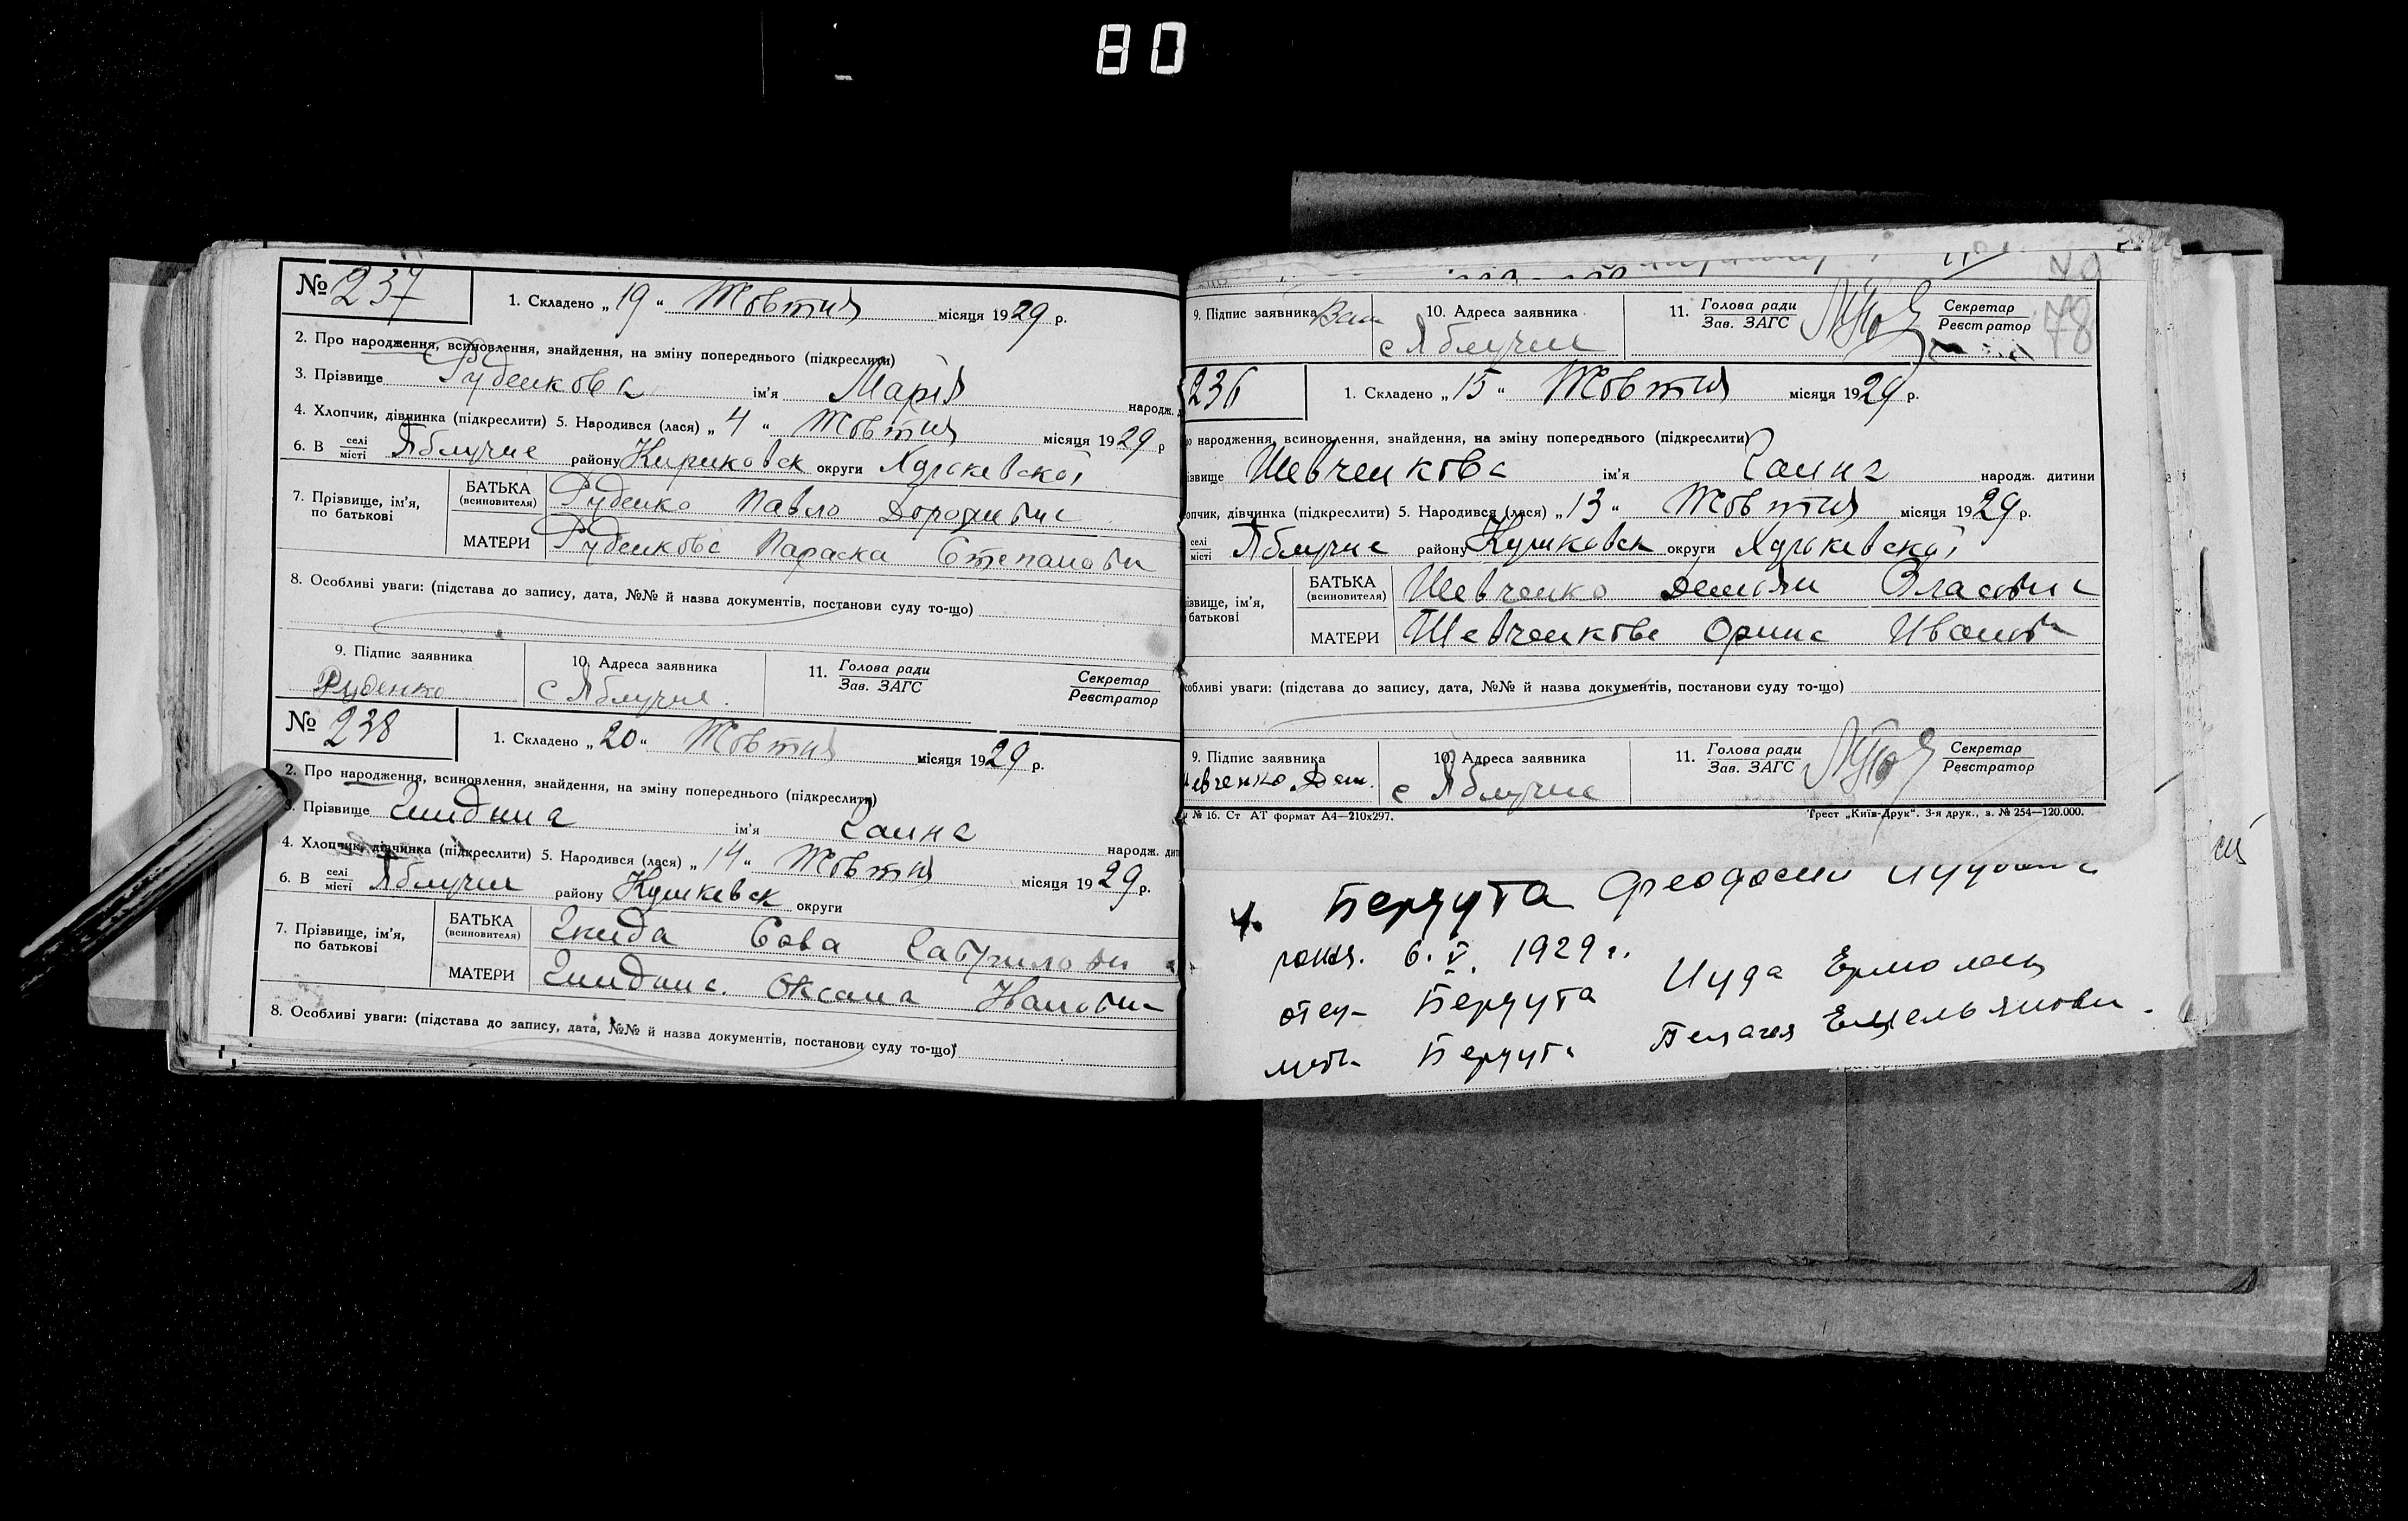 80
№ 237
1. Складено „19“ Жовтня місяця 1929 р.
2. Про народження, всиновлення, знайдення, на зміну попереднього (підкреслити)
3. Прізвище Руденкова ім'я Марія народж.
4. Хлопчик, дівчинка (підкреслити) 5. Народився (лася) „4“ Жовтня місяця 1929 р
6. В селі місті Яблучне району Кириковск округи Харькевської
7. Прізвище, ім'я, по батькові
БАТЬКА (всиновителя) Руденко Павло
МАТЕРИ Руденкова Параска Степановн
8. Особливі уваги: (підстава до запису, дата, №№ й назва документів, постанови суду то-що)
9. Підпис заявника 10. Адреса заявника 11. Голова ради Зав. ЗАГС Секретар Реєстратор
Руденко с Яблучне
№ 238
1. Складено „20“ Жовтня місяця 1929 р.
2. Про народження, всиновлення, знайдення, на зміну попереднього (підкреслити)
3. Прізвище ім'я Ганна народж. дит
4. Хлопчик, дівчинка (підкреслити) 5. Народився (лася) „14“ Жовтня місяця 1929 р.
6. В селі місті Яблучне району округи
7. Прізвище, ім'я, по батькові
БАТЬКА (всиновителя) Гнида Сава
МАТЕРИ Оксана Ивановна
8. Особливі уваги: (підстава до запису, дата, №№ й назва документів, постанови суду то-що)
78
9. Підпис заявника 10. Адреса заявника 11. Голова ради Зав. ЗАГС Секретар Реєстратор
с Яблучне
236
1. Складено „15“ Жовтня місяця 1929 р.
народження, всиновлення, знайдення, на зміну попереднього (підкреслити)
ізвище Шевченкова ім'я Ганна народж. дитини
опчик, дівчинка (підкреслити) 5. Народився (лася) „13“ Жовтня місяця 1929 р.
селі місті Яблучне району округи Харькевської
ізвище, ім'я, батькові
БАТЬКА (всиновителя) Шевченко Демьян Власович
МАТЕРИ Шевченкова Орина Ивановн
собливі уваги: (підстава до запису, дата, №№ й назва документів, постанови суду то-що)
9. Підпис заявника 10. Адреса заявника 11. Голова ради Зав. ЗАГС Секретар Реєстратор
евченко Дем. с Яблучне
№ 16. Ст АТ формат А4—210х297. Трест „Київ-Друк“. 3-я друк., з. № 254—120.000.
Бердута Феодосий Иудович
рожд. 6. V. 1929 г.
отец Бердута Иуда Ермолаев
мать Бердута Пелагея Емельянови